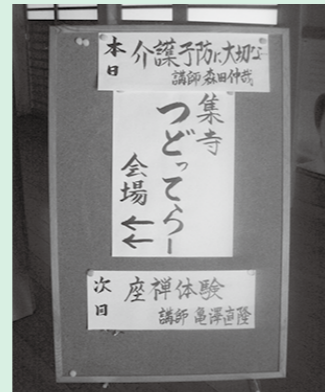 本日
介護予防に大切な
講師 森田伸哉
集寺
つどってらー
会場 ←←
次回
座禅体験
講師 亀澤直隆